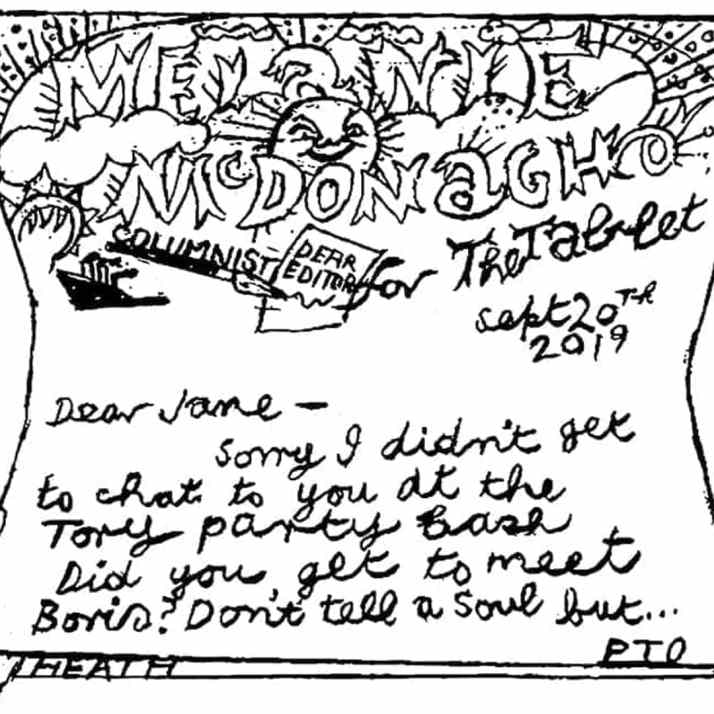 MELaNIE
McDONaGHO
COLUMNIST
DEAR
EDITOR
for The Tablet
Sept 20Th
2019
Dear Jane -
Sorry I didn't get
to chat to you at the
Tory party bash
Did you get to meet
Boris? Don't tell a soul but...
PTO
HEATH